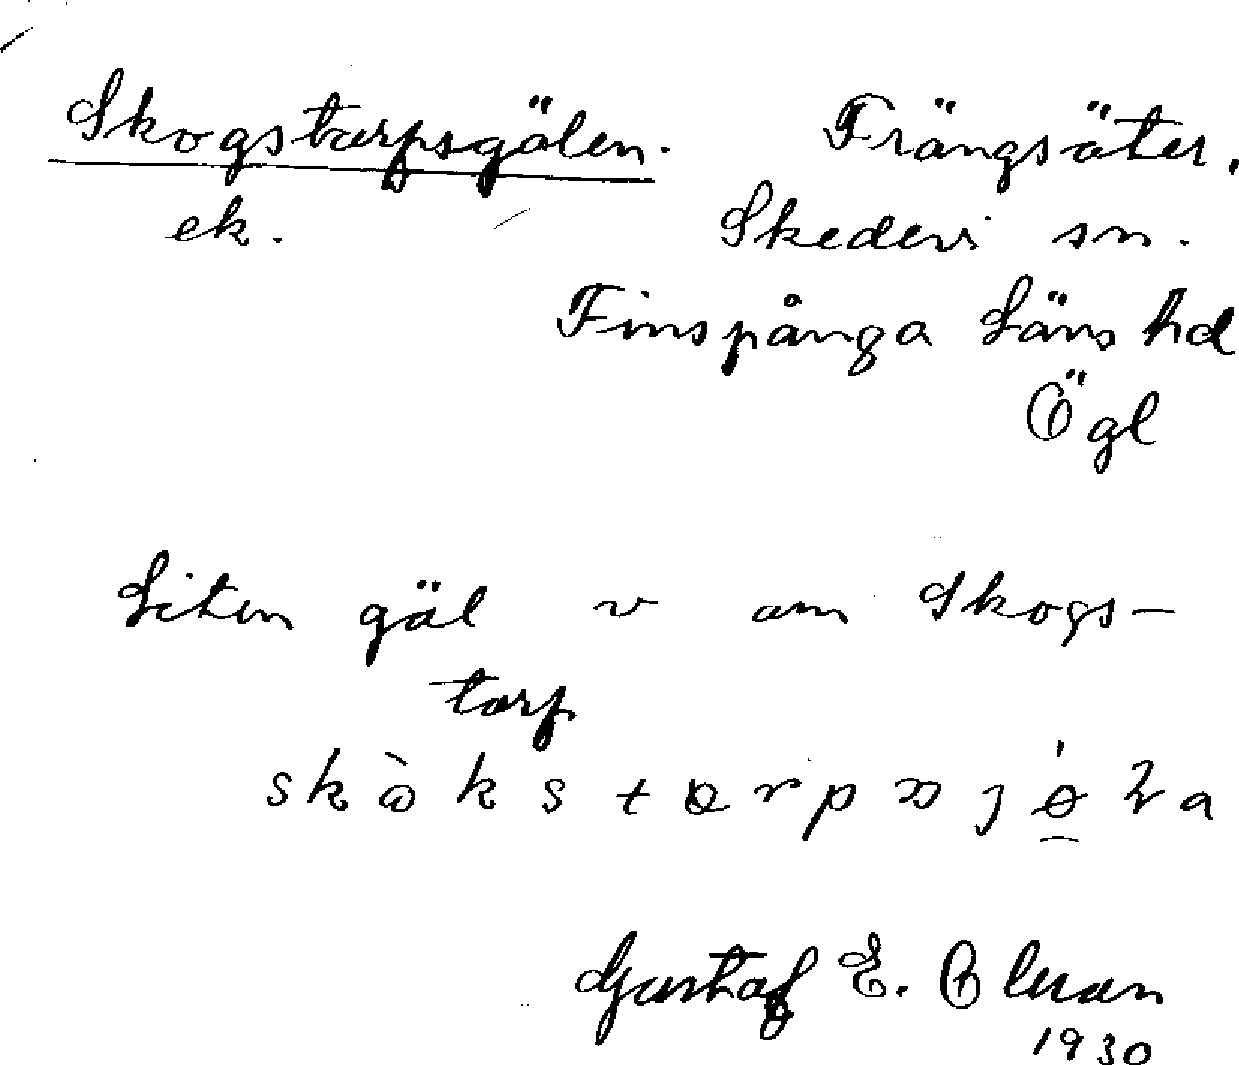 Skogstorpsgölen. Frängsäter.
ek. Skedevi sn.
Finspånga Läns hd
Ögl
Liten göl v om Skogs-
torp
Gustaf E. Olsson
1930